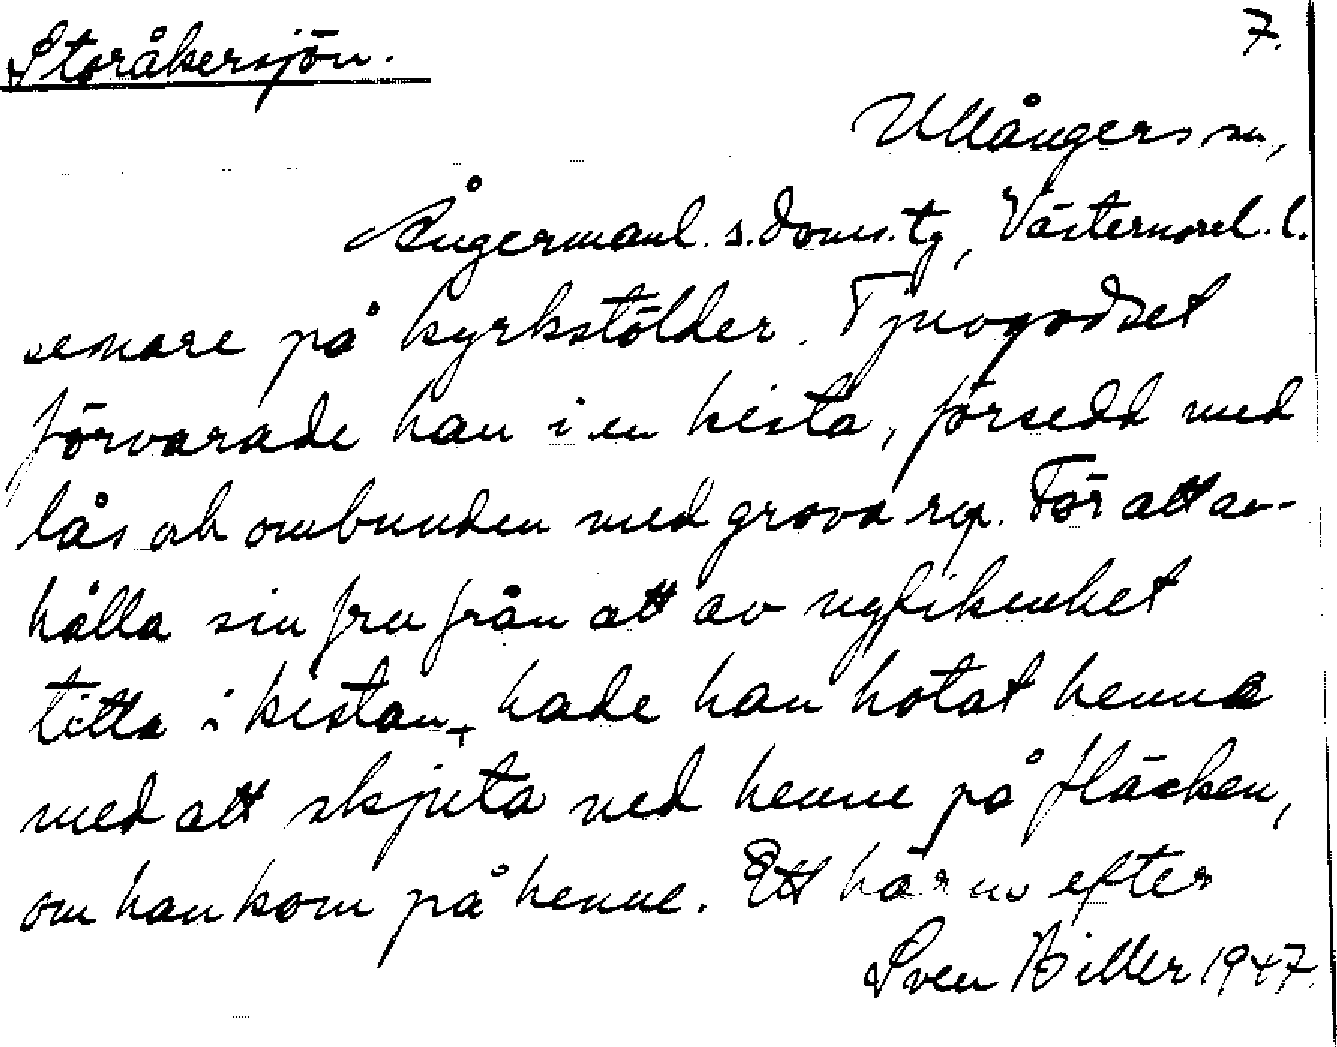 Storåkersjön.
7.
Ullångers sn,
Ångermanl. s. doms. tg, Västernorrl. l.
senare på kyrkstölder. Tjuvgodset
förvarade han i en kista, försedd med
lås och ombunden med grova rep. För att av-
hålla sin fru från att av nyfikenhet
titta i kistan, hade han hotat henne
med att skjuta ned henne på fläcken,
om han kom på henne. Ett efter
Sven Biller 1947.